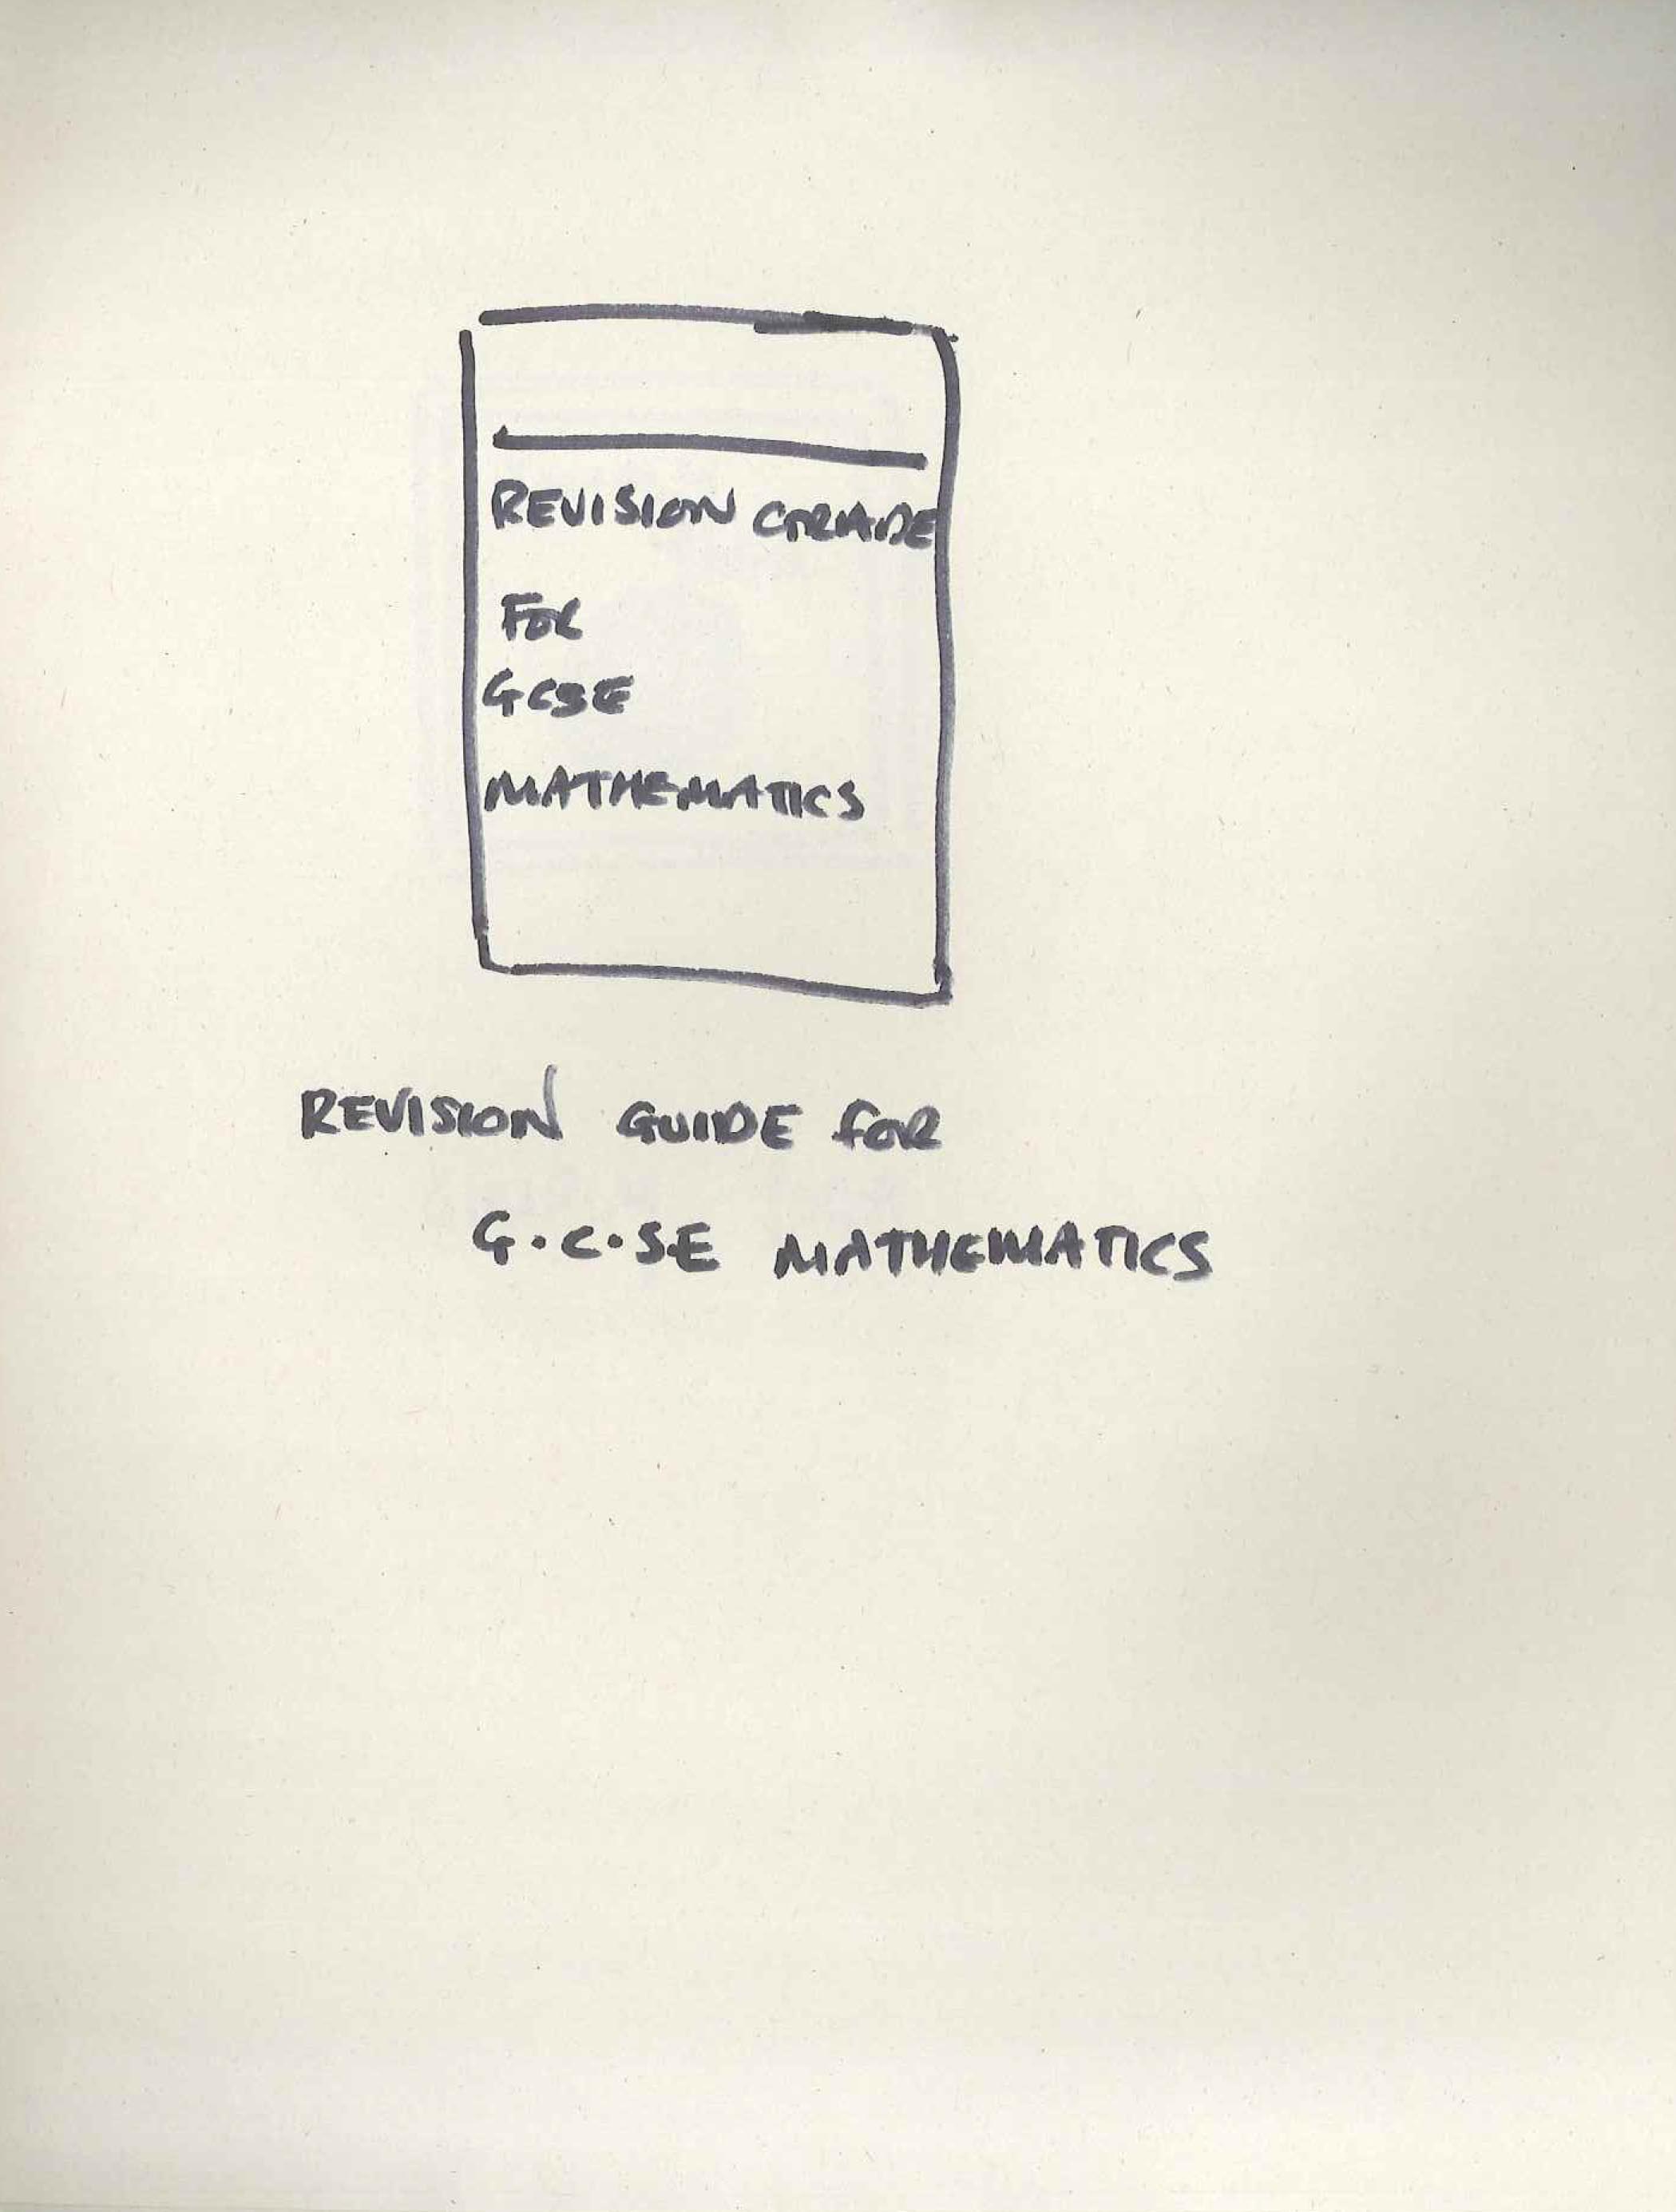 REVISION GRADE
FOR
GCSE
MATHEMATICS
REVISION GUIDE FOR
G.C.SE MATHEMATICS